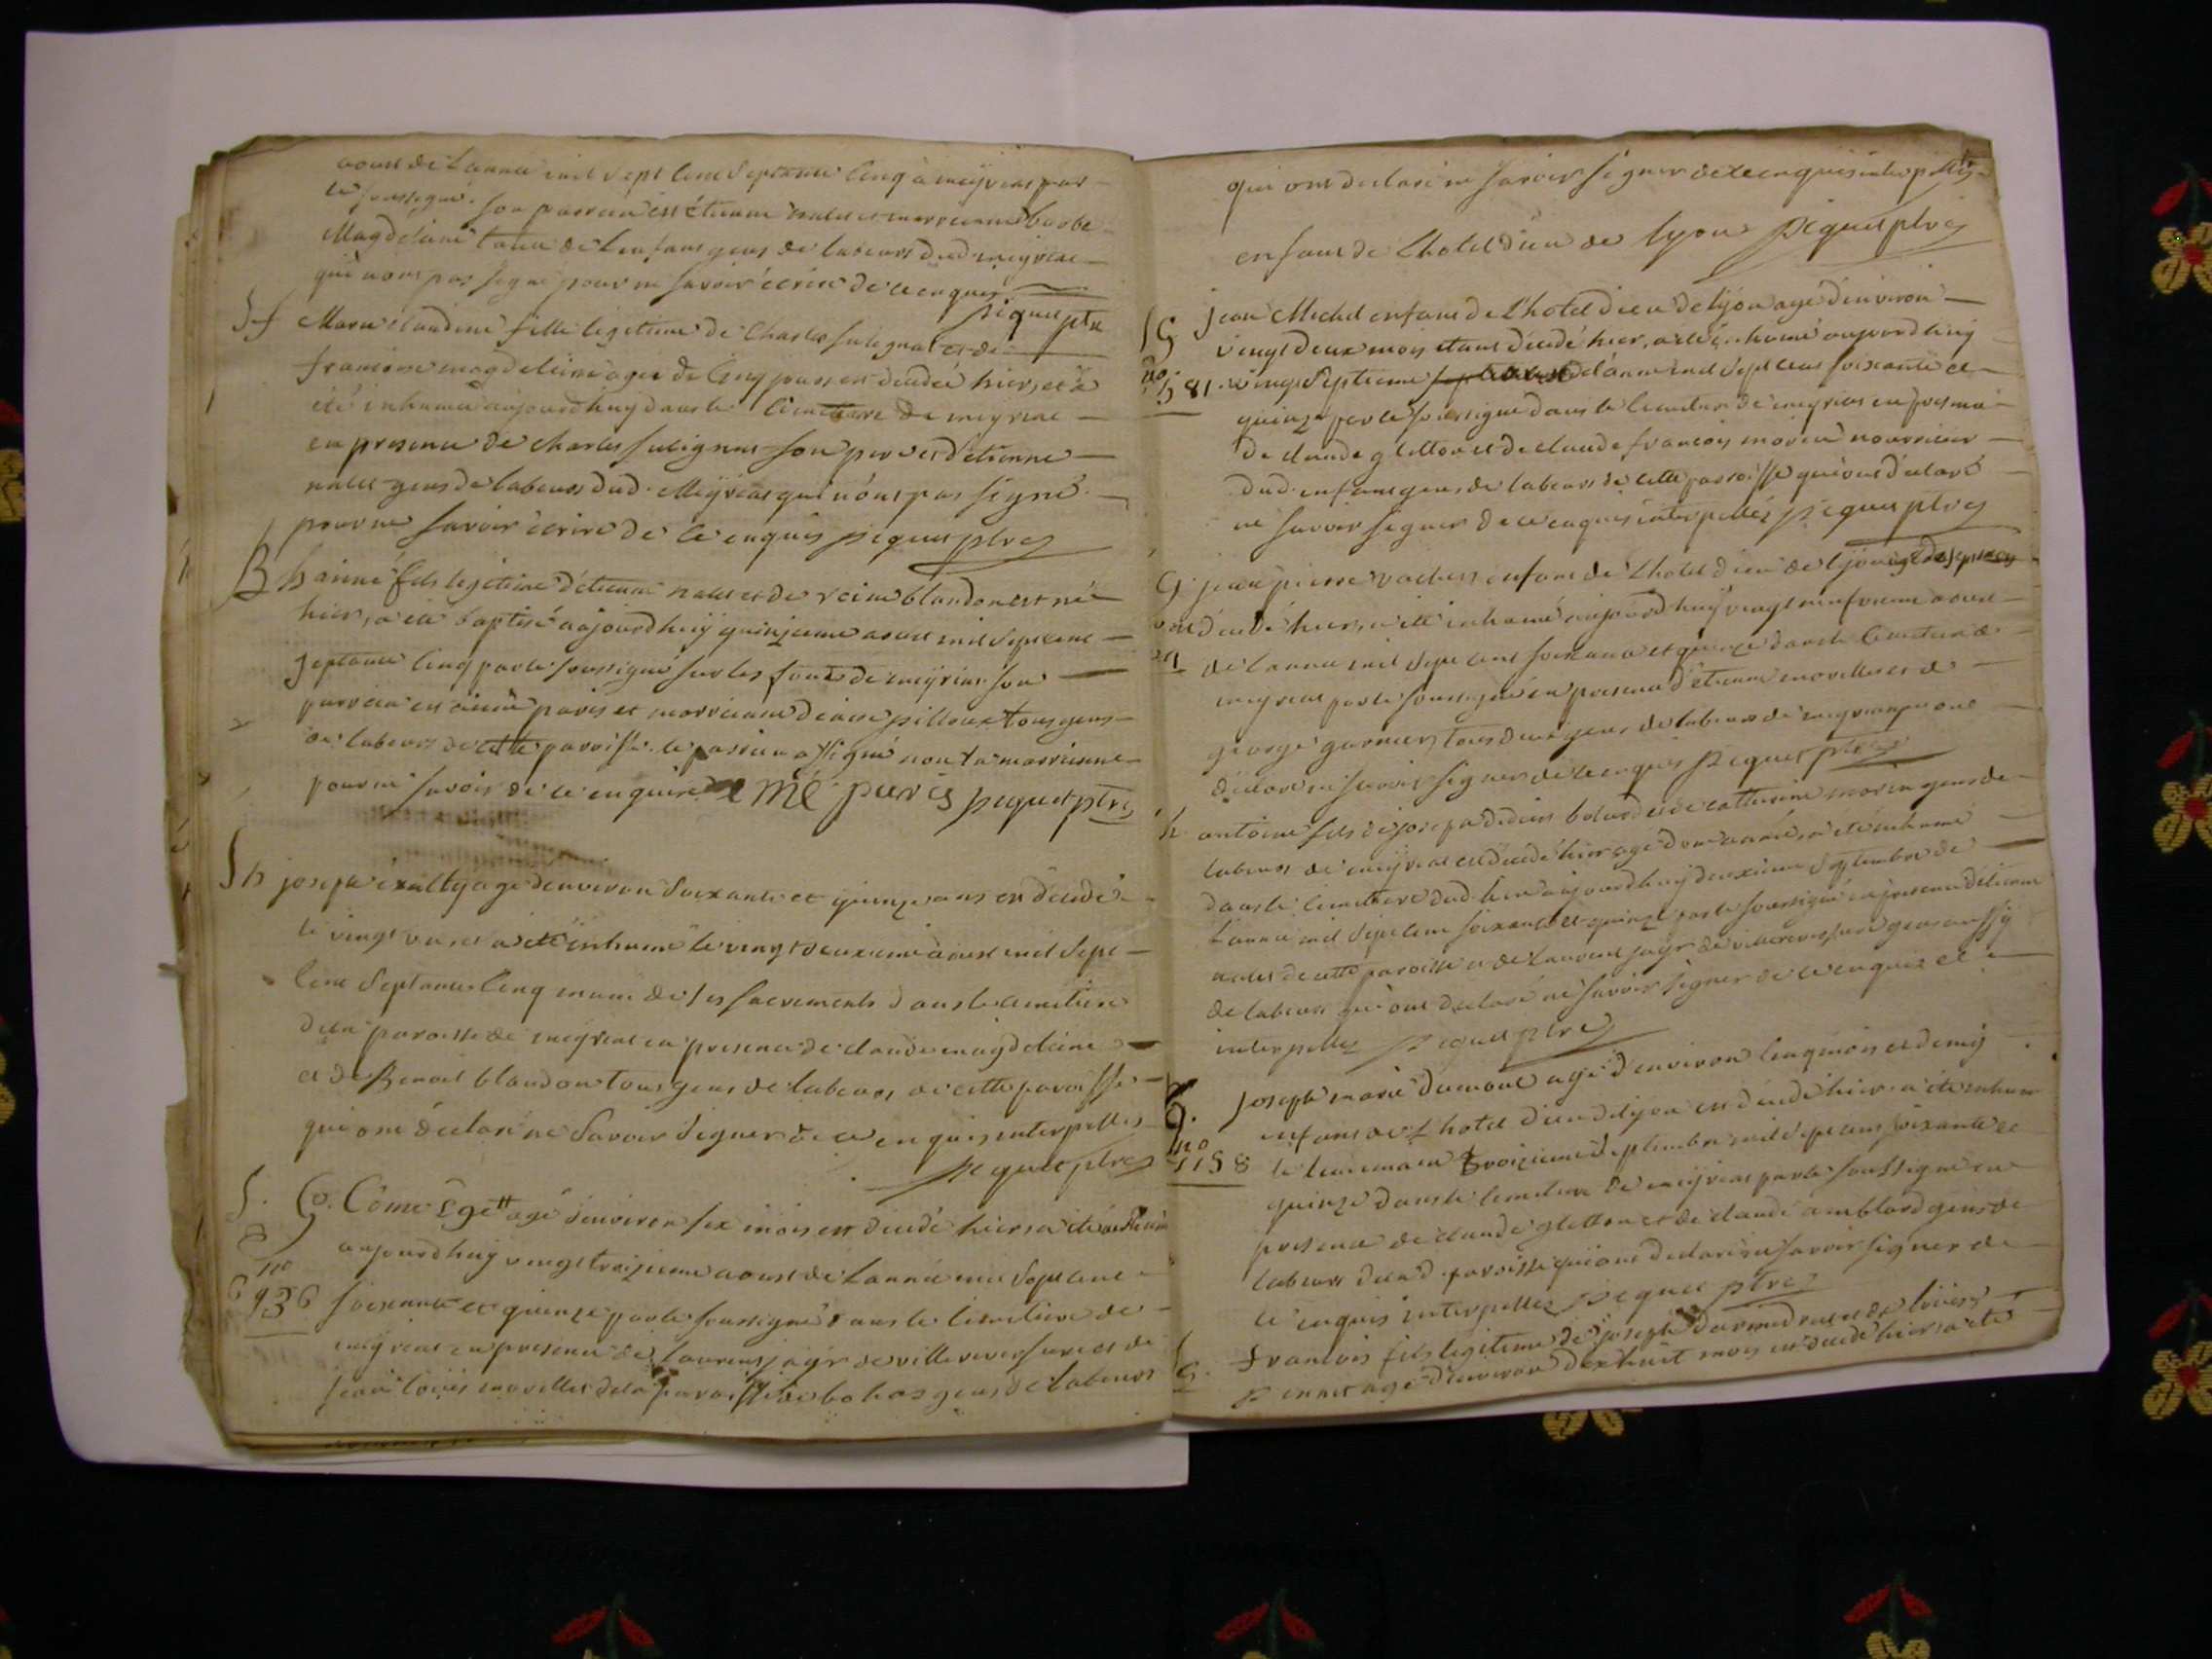 aoust de Lannée mil sept cent septante cinq à meyriat par
le soussigné. son parrein est étienne nalet et marreinne barbe
Magdeleine tante de Lenfant gens de labeurs dud. meyriat
qui nont pas signé pour ne savoir écrire de ce enquis
piquet ptre
Sf Marie claudine fille legitime de Charles sulignat et de
francoise magdeleine agée de cinq jours est decedée hier, et a
été inhumée aujourdhuy dans le cimetiere de meyriat
en presence de charles sulignat son pere et d'etienne
nalet gens de labeurs dud. Meÿriat qui n'ont pas signé
pour ne savoir écrire de ce enquis piquet ptre
B h aimé fils legitime d'etienne nalet et de reine blandon est né
hier, a été baptisé aujourdhuÿ quinzieme aoust mil sept cent
septante cinq par le soussigné sur les fonts de meÿriat son
parrein est aimé paris et marreinne pilloux tous gens
de labeurs de cette paroisse. le parrein a signé non la marreinne
pour ne savoir de ce enquise emé paris piquet ptre
Sh joseph agé denviron soixante et quinze ans est decedé
le vingt un et a été inhumé le vingt deuxieme aoust mil sept
cent septante cinq muni de ses sacrements dans le cimetiere
de la paroisse de meÿriat en presence de claude magdeleine
et de Benoit blandon tous gens de labeurs de cette paroisse
qui ont déclaré ne savoir signer de ce enquis interpellés
piquet ptre
S. G. Côme agé denviron six mois est decedé hier a été
aujourdhuy vingt troizieme aoust de Lannée mil sept cent
no 6936 soixante et quinze par le soussigné dans le cimetiere de
meÿriat en presence de laurens jaÿr de villereversure et de
jean loüis morellet de la paroisse de bohas gens de labeurs
qui ont declaré ne savoir signer de ce enquis interpellés
enfant de Lhotel dieu de lyon piquet ptre
SG jean Michel enfant de L'hotel dieu de lÿon agé d'environ
vingt deux mois etant décedé hier, a été inhumé aujourdhuÿ
no 581. vingt septieme aoust de lannée mil sept cent soixante et
quinze par le soussigné dans le cimetiere de meyriat en presence
de claude gletton et de claude francois morin nourricier
dud. enfant gens de labeurs de cette paroisse qui ont declaré
ne savoir signer de ce enquis interpellés piquet ptre
G jean pierre enfant de Lhotel dieu de lÿon agé de
est décedé hier, a été inhumé aujourdhuÿ vingt neufvieme aoust
de Lannée mil sept cent soixante et quinze dans le cimetiere de
meyriat par le soussigné en presence d'etienne morellet et de
george garnier tous deux gens de labeurs de meyriat qui ont
declaré ne savoir signer de ce enquis piquet ptre
h antoine fils de joseph bolard et de catherine morin gens de
labeurs de meÿriat est decedé hier agé d'une année, a été inhumé
dans le cimetiere dud. lieu aujourdhuÿ deuxieme septembre de
Lannée mil sept cent soixante et quinze par le soussigné en presence d'etienne
nalet de cette paroisse et de Laurent jaÿr de villereversure gens aussÿ
de labeurs qui ont declaré ne savoir signer de ce enquis et
interpellés piquet ptre
G. joseph marie dumont agé d'environ cinq mois et demÿ
enfant de L'hotel dieu de lÿon est décedé hier a été inhumé
no 1158 le lendemain troizieme septembre mil sept cent soixante et
quinze dans le cimetiere de meÿriat par le soussigné en
presence de claude gletton et de claude amblard gens de
labeurs de lad. paroisse qui ont declaré ne savoir signer de
ce enquis interpellés piquet ptre
G. francois fils legitime de joseph et de loüise
agé d'environ dix huit mois est decedé hier a été